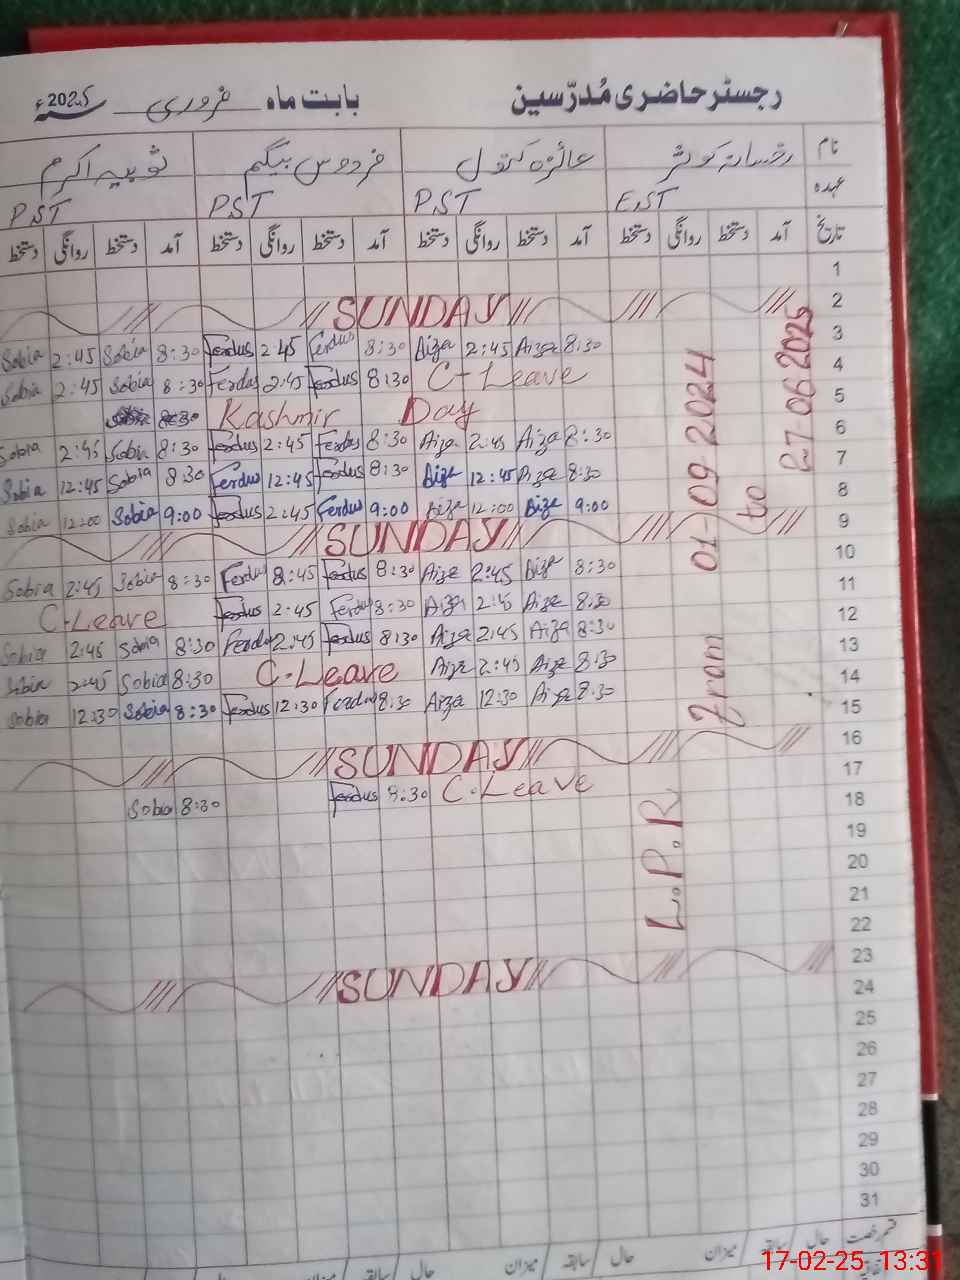 رجسٹر حاضری مُدرّسین بابت ماہ فروری سنہ 2025ء
نام رخسانہ کوثر عائزہ بتول فردوس بیگم ثوبیہ اکرم
عہدہ EST PST PST PST
تاریخ آمد دستخط روانگی دستخط آمد دستخط روانگی دستخط آمد دستخط روانگی دستخط آمد دستخط روانگی دستخط
1
2 SUNDAY
3 Sobia 2:45 Sobia 8:30 Ferdus 2:45 Ferdus 8:30 Aiza 2:45 Aiza 8:30
4 Sobia 2:45 Sobia 8:30 Ferdus 2:45 Ferdus 8:30 C-Leave
5 Kashmir Day
6 Sobia 2:45 Sobia 8:30 Ferdus 2:45 Ferdus 8:30 Aiza 2:45 Aiza 8:30
7 Sobia 12:45 Sobia 8:30 Ferdus 12:45 Ferdus 8:30 Aiza 12:45 Aiza 8:30
8 Sobia 12:00 Sobia 9:00 Ferdus 2:45 Ferdus 9:00 Aiza 12:00 Aiza 9:00
9 SUNDAY
10 Sobia 2:45 Sobia 8:30 Ferdus 2:45 Ferdus 8:30 Aiza 2:45 Aiza 8:30
11 C-Leave Ferdus 2:45 Ferdus 8:30 Aiza 2:45 Aiza 8:30
12 Sobia 2:45 Sobia 8:30 Ferdus 2:45 Ferdus 8:30 Aiza 2:45 Aiza 8:30
13 Sobia 2:45 Sobia 8:30 C-Leave Aiza 2:45 Aiza 8:30
14 Sobia 12:30 Sobia 8:30 Ferdus 12:30 Ferdus 8:30 Aiza 12:30 Aiza 8:30
15
16 SUNDAY
17 Sobia 8:30 Ferdus 8:30 C-Leave
18
19
20
21
22
23 SUNDAY
24
25
26
27
28
29
30
31
L.P.R from 01-09-2024 to 27-06-2025
قسم رخصت حال سابقہ میزان حال سابقہ میزان حال سابقہ میزان حال
17-02-25 13:31